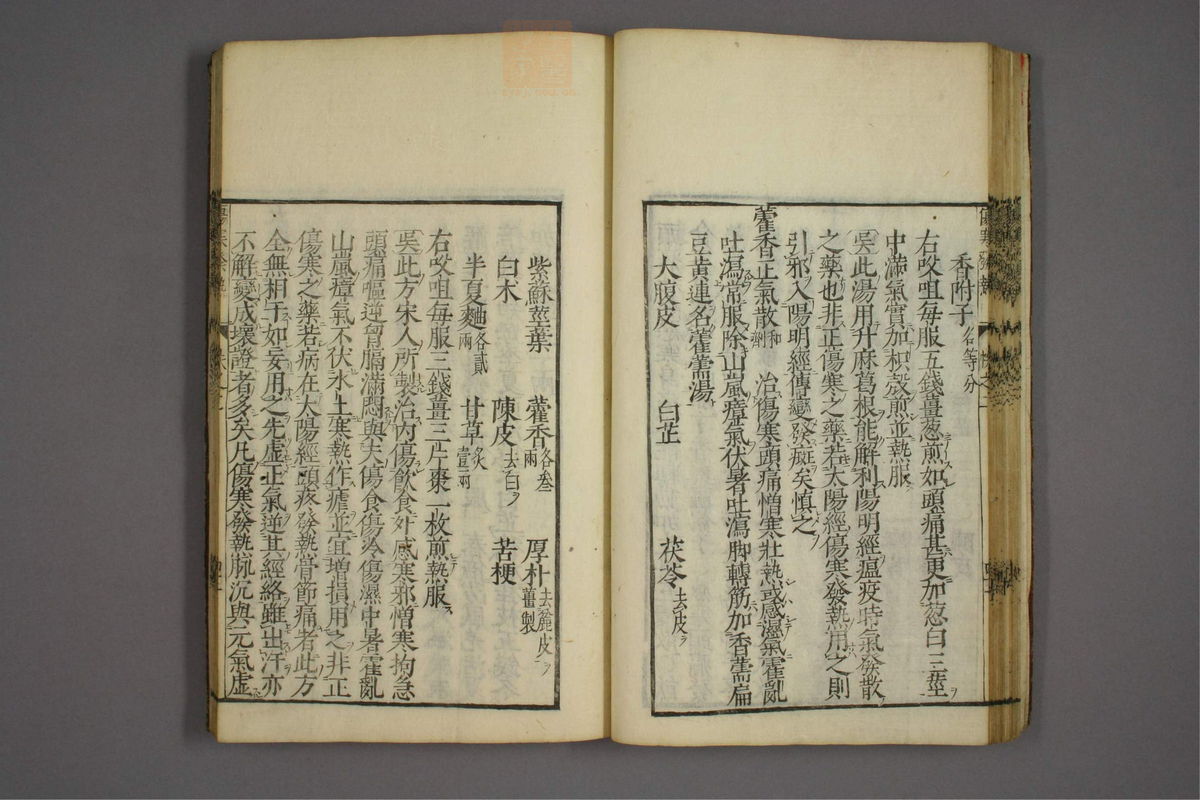 香附子各等分
右㕮咀每服五錢薑葱煎如頭痛甚更加葱白三莖
中滿氣實加枳殼煎並熱服
吳此湯用升麻葛根能解利陽明經瘟疫時氣發散
之藥也非正傷寒之藥若太陽經傷寒發熱用之則
引邪入陽明經傳變發癍矣慎之
藿香正氣散和劑 治傷寒頭痛憎寒壯熱或感濕氣霍亂
吐瀉常服除山嵐瘴氣伏暑吐瀉脚轉筋加香薷扁
豆黄連名藿薷湯
大腹皮 白芷 茯苓去皮
紫蘇莖葉 藿香各叁兩 厚朴去麄皮薑製
白术 陳皮去白 苦梗
半夏麯各貳兩 甘草炙壹兩
右㕮咀每服三錢薑三片棗一枚煎熱服
吳此方宋人所製治内傷飲食外感寒邪憎寒拘急
頭痛嘔逆胷膈滿悶與夫傷食傷冷傷濕中暑霍亂
山嵐瘴氣不伏水土寒熱作瘧並宜增損用之非正
傷寒之藥若病在太陽經頭疼發熱骨節痛者此方
全無相干如妄用之先虛正氣逆其經絡雖出汗亦
不解變成壞證者多矣凡傷寒發熱脈沉與元氣虛